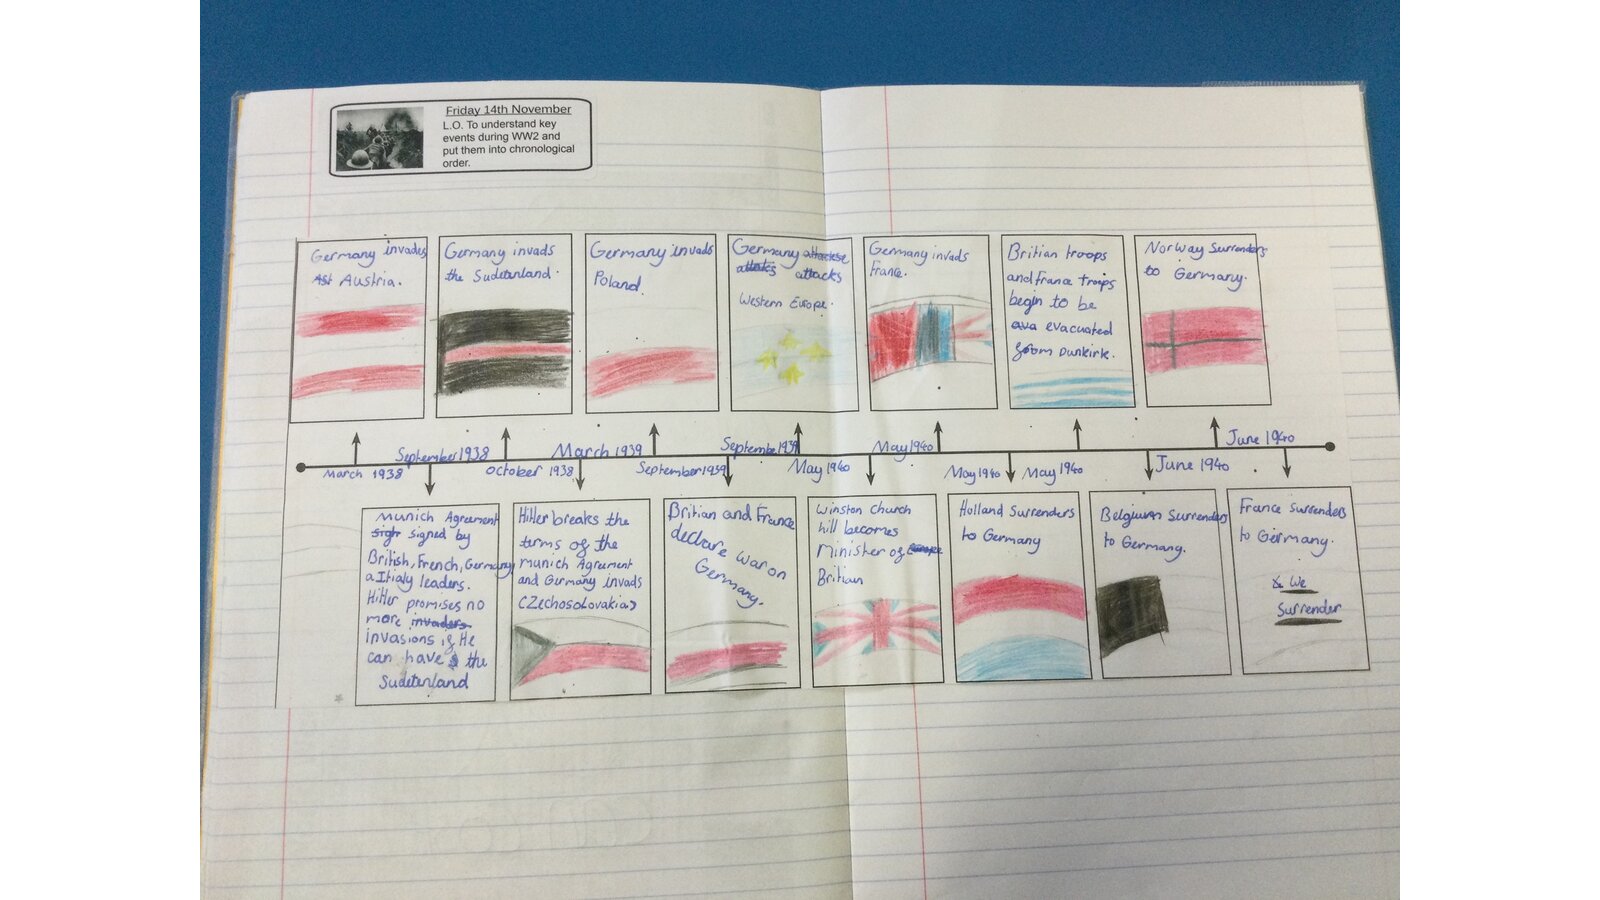 Friday 14th November
L.O. To understand key
events during WW2 and
put them into chronological
order.
Germany invades
Austria.
Germany invads
the Sudetenland.
Germany invads
Poland.
Germany attackse
attaks attacks
Western Europe.
Germany invads
France.
Britian troops
and france troops
begin to be
ava evacuated
from Dunkirk.
Norway Surrenders
to Germany.
March 1938
September 1938
October 1938
March 1939
September 1939
September 1939
May 1940
May 1940
May 1940
May 1940
June 1940
June 1940
Munich Agreement
sign signed by
British, French, Germany
a Itialy leaders.
Hitler promises no
more invaders
invasions if He
can have the
Sudetenland
Hitler breaks the
terms of the
munich Agreement
and Germany invads
(CZechosolovakia)
Britian and France
declare war on
Germany.
Winston Church
hill becomes
Minister of Europe
Britian
Holland Surrenders
to Germany
Belgium Surrenders
to Germany.
France surrenders
to Germany.
We
Surrender